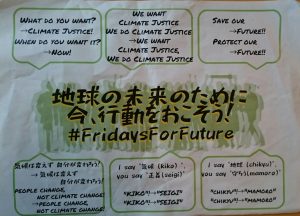 What do you want?
→Climate Justice!
When do you want it?
→Now!
We want
Climate Justice
We do Climate Justice
→We want
Climate Justice,
We do Climate Justice
Save our
→Future!!
Protect our
→Future!!
地球の未来のために
今、行動をおこそう!
#FridaysForFuture
気候は変えず 自分が変わろう!
→気候は変えず
自分が変わろう!
People change,
not climate change!
→People change,
not climate change!
I say "気候 (kiko)",
you say "正義(seigi)"
"KIKO"!→"SEIGI"
"KIKO"!→"SEIGI"
I say "地球 (chikyu)",
you say "守ろう(mamoro)
"CHIKYU"!→"MAMORO"
"CHIKYU"!→"MAMORO"